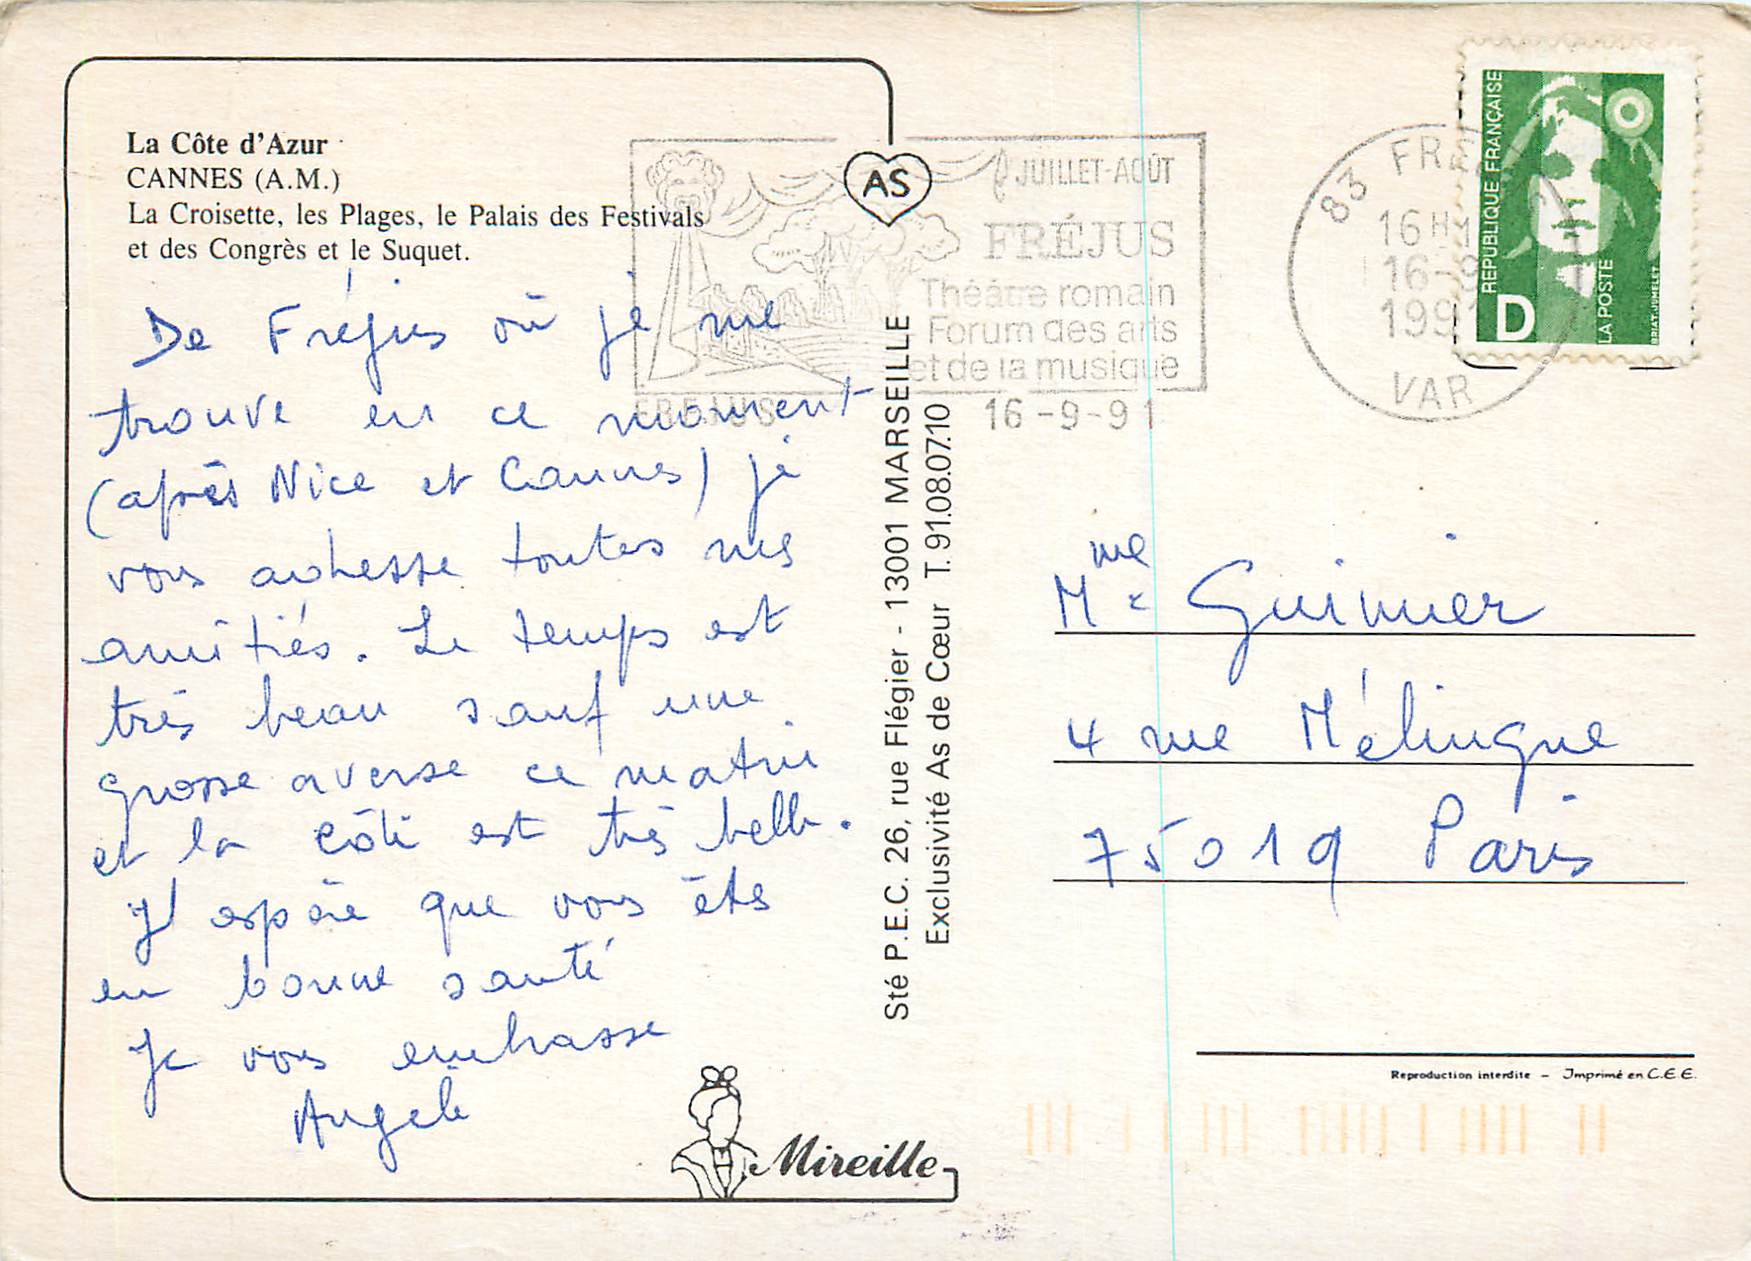 La Côte d'Azur
CANNES (A.M.)
La Croisette, les Plages, le Palais des Festivals
et des Congrès et le Suquet.
De Fréjus où je me
trouve en ce moment
(après Nice et Cannes) je
vous adresse toutes mes
amitiés. Le temps est
très beau sauf une
grosse averse ce matin
et la côte est très belle.
J'espère que vous êtes
en bonne santé
Je vous embrasse
Angèle
Mireille
AS
Sté P.E.C. 26, rue Flégier - 13001 MARSEILLE
Exclusivité As de Cœur T. 91.08.07.10
JUILLET-AOÛT
FRÉJUS
Théâtre romain
Forum des arts
et de la musique
FREJUS
16-9-91
83 FRE
16 H
16-9
199
VAR
RÉPUBLIQUE FRANÇAISE
D
LA POSTE
BRIAT-JUMELET
Mme Guimier
4 rue Mélingue
75019 Paris
Reproduction interdite – Imprimé en C.E.E.